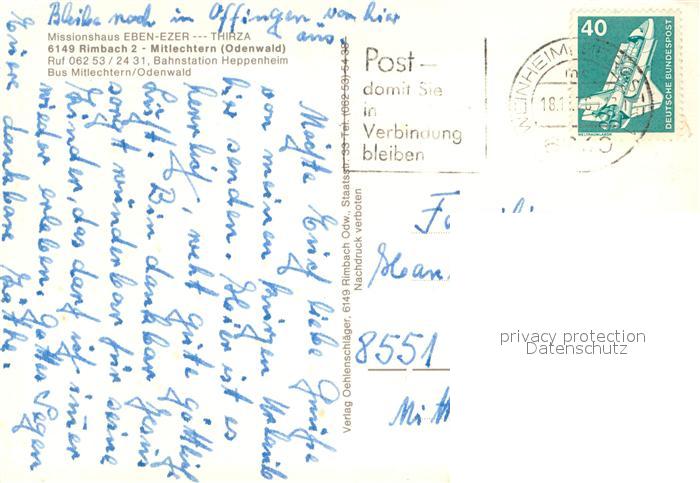 Bleibe noch in Offingen von hier
aus
Missionshaus EBEN-EZER --- THIRZA
6149 Rimbach 2 - Mitlechtern (Odenwald)
Ruf 062 53 / 24 31, Bahnstation Heppenheim
Bus Mitlechtern/Odenwald
Möchte Euch liebe Grüße
von meinem kurzen Urlaub
hier senden. Hier ist es
herrlich, recht gute göttlich
Luft. Bin dankbar Jesus
sorgt wunderbar für seine
Kinder, das darf ich immer
wieder erleben. Gottes Segen
Eure dankbare Käthe.
Verlag Oehlenschläger, 6149 Rimbach Odw., Staatsstr. 33 Tel. (062 53) 54 38
Nachdruck verboten
Post -
damit Sie
in
Verbindung
bleiben
WEINHEIM
18.1
40
DEUTSCHE BUNDESPOST
WELTRAUMLABOR
Fa
Han
8551
Mitt
privacy protection
Datenschutz